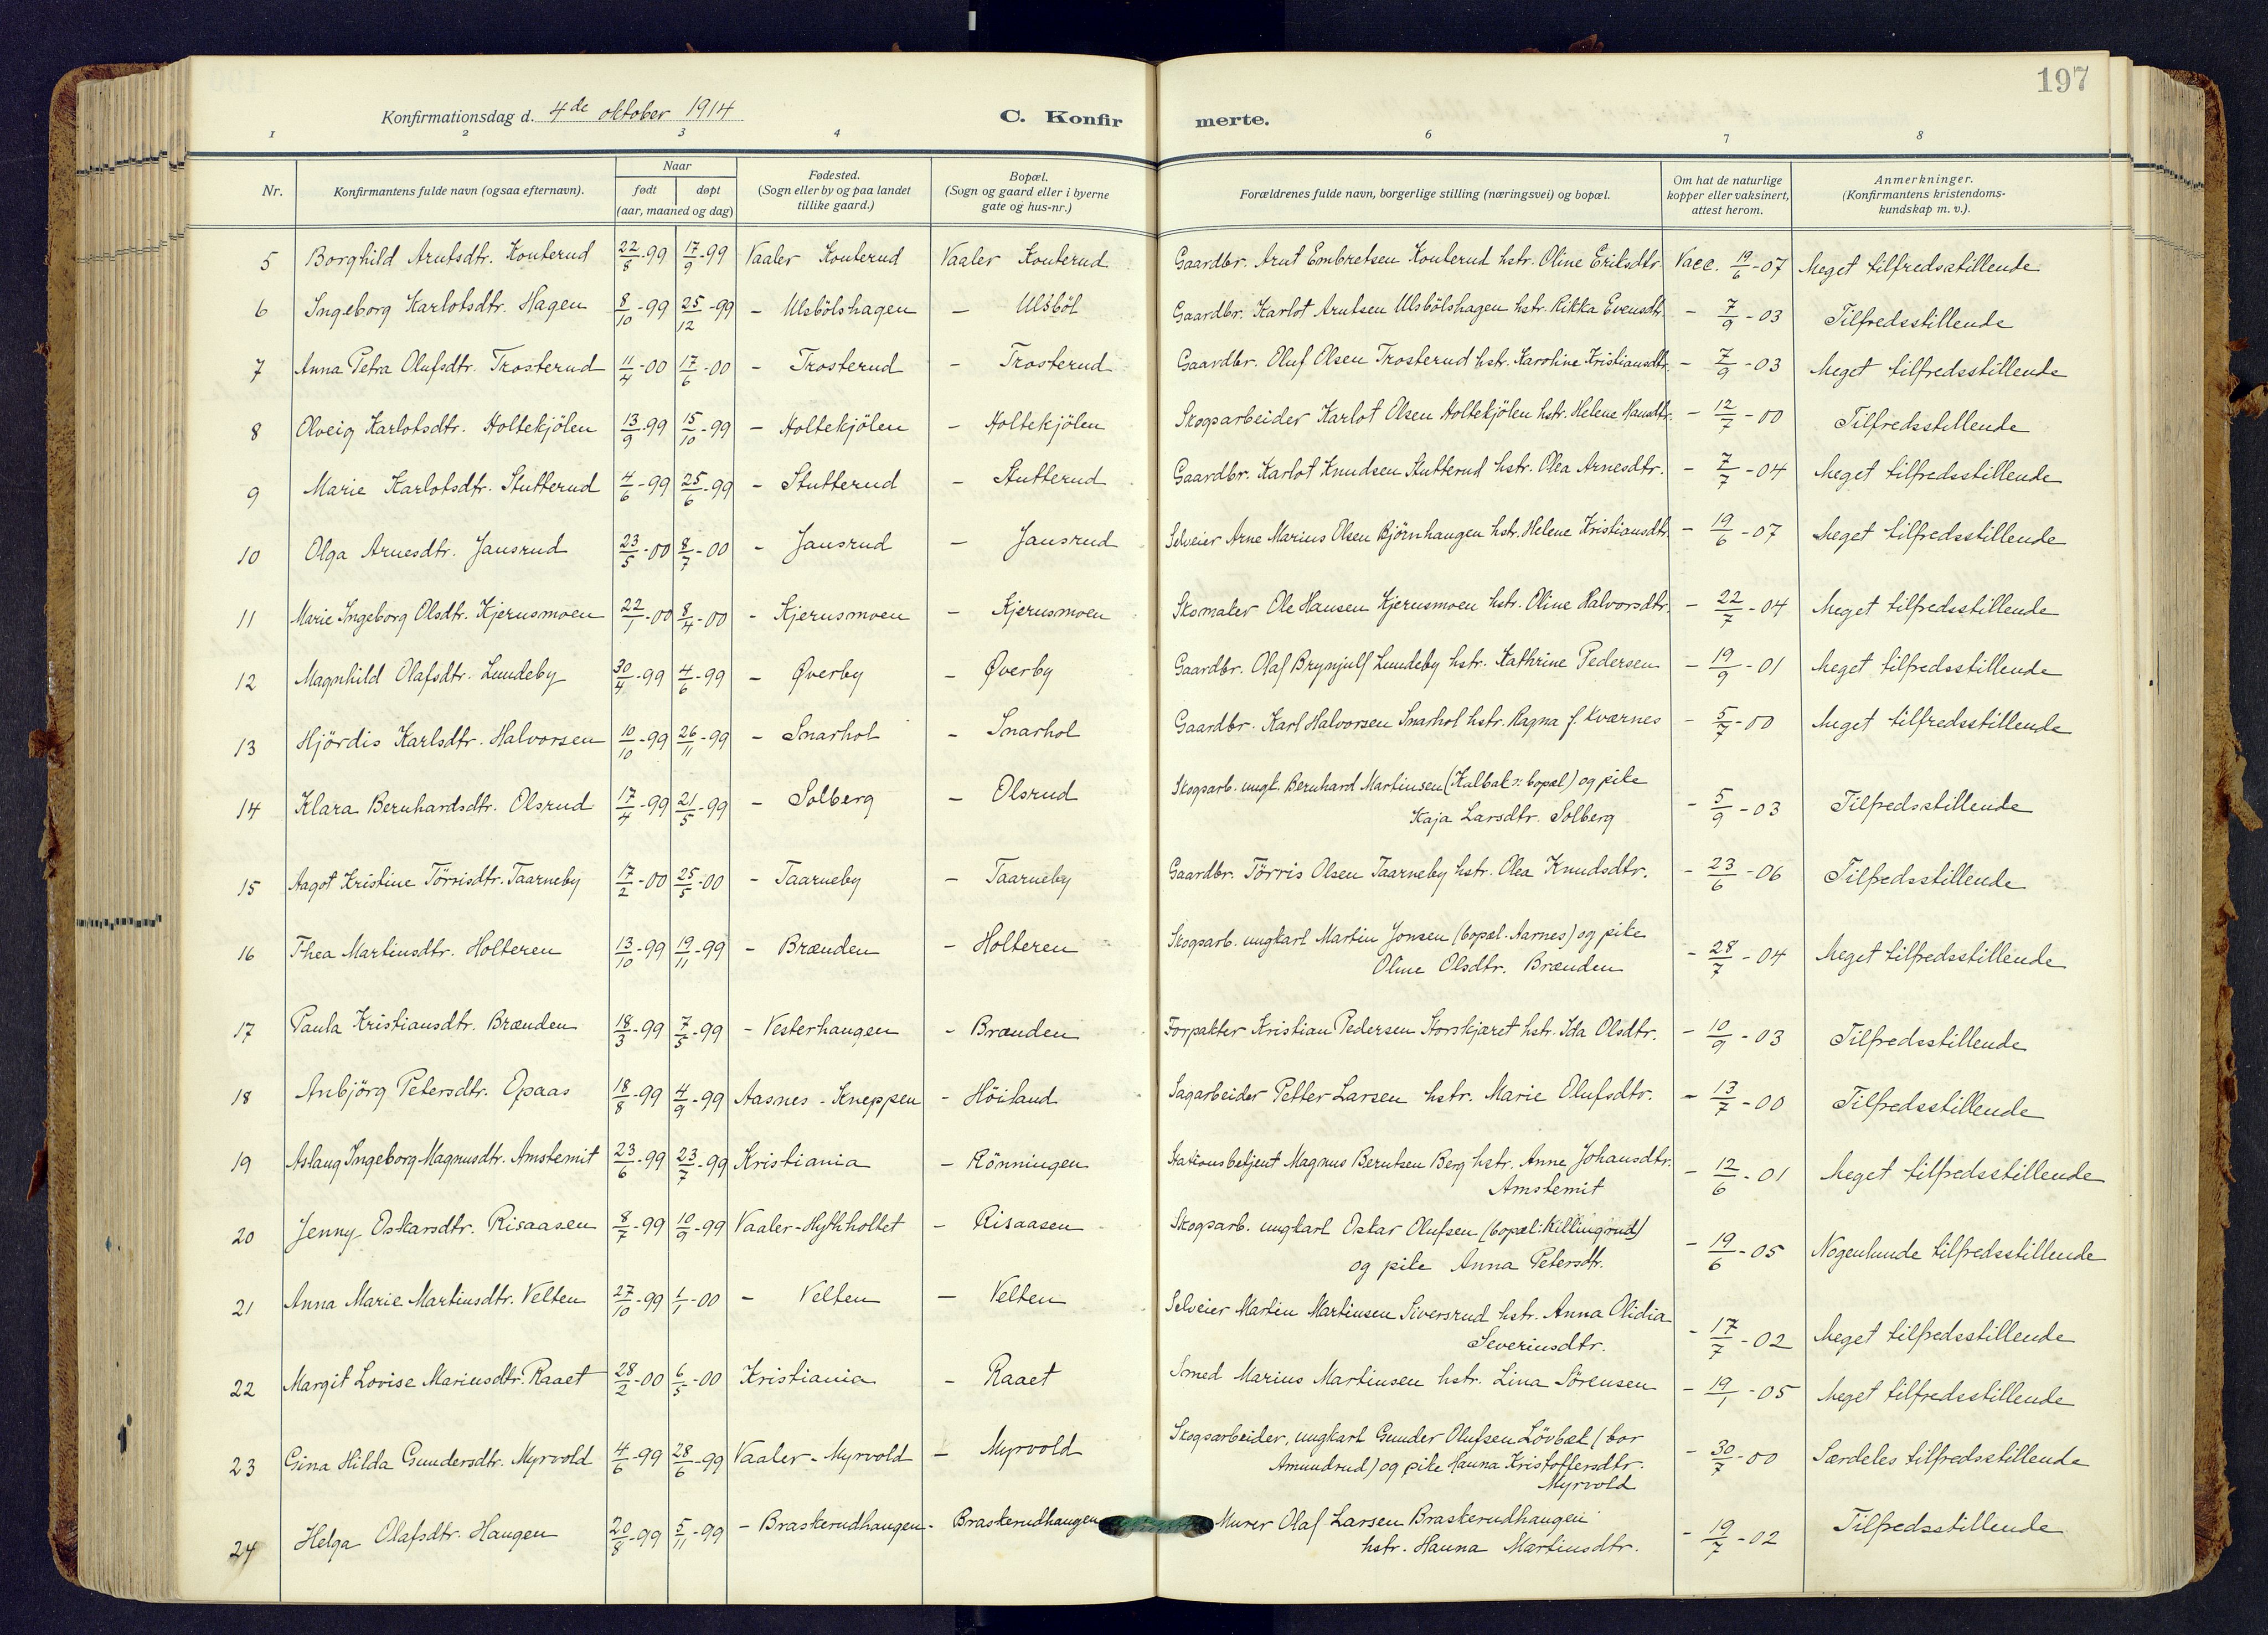 197
Konfirmationsdag d. 4de oktober 1914
C. Konfirmerte.
1 2 3 4 6 7 8
Nr. | Konfirmantens fulde navn (ogsaa efternavn). | Naar født | døpt (aar, maaned og dag) | Fødested. (Sogn eller by og paa landet tillike gaard.) | Bopæl. (Sogn og gaard eller i byerne gate og hus-nr.) | Forældrenes fulde navn, borgerlige stilling (næringsvei) og bopæl. | Om hat de naturlige kopper eller vaksinert, attest herom. | Anmerkninger. (Konfirmantens kristendoms-kundskap m. v.).
5 Borghild Arntsdtr. Konterud 22/8-99 17/9-99 Vaaler Konterud Vaaler Konterud Gaardbr. Arnt Embretsen Konterud hstr. Oline Eriksdtr. Vacc. 19/6-07 Meget tilfredsstillende
6 Ingeborg Karlotsdtr. Hagen 8/10-99 25/12-99 - Ulsbölshagen - Ulsböl Gaardbr. Karlot Arntsen Ulsbölshagen hstr. Rikka Evensdtr. - 7/9-03 Tilfredsstillende
7 Anna Petra Olufsdtr. Trosterud 11/4-00 17/6-00 - Trosterud - Trosterud Gaardbr. Oluf Olsen Trosterud hstr. Karoline Kristiansdtr. - 7/9-03 Meget tilfredsstillende
8 Olveig Karlotsdtr. Holtekjölen 13/9-99 15/10-99 - Holtekjölen - Holtekjölen Skogsarbeider Karlot Olsen Holtekjölen hstr. Helene Hansdtr. - 12/7-00 Tilfredsstillende
9 Marie Karlotsdtr. Stutterud 4/6-99 25/6-99 - Stutterud - Stutterud Gaardbr. Karlot Knudsen Stutterud hstr. Olea Arnesdtr. - 7/7-04 Meget tilfredsstillende
10 Olga Arnesdtr. Jansrud 23/5-00 8/7-00 - Jansrud - Jansrud Selveier Arne Marius Olsen Bjørnhaugen hstr. Helene Kristiansdtr. - 19/6-07 Meget tilfredsstillende
11 Marie Ingeborg Olsdtr. Kjernsmoen 22/1-00 8/4-00 - Kjernsmoen - Kjernsmoen Skomaker Ole Hansen Kjernsmoen hstr. Oline Halvorsdtr. - 22/7-04 Meget tilfredsstillende
12 Magnhild Olafsdtr. Lundeby 30/4-99 4/6-99 - Øverby - Øverby Gaardbr. Olaf Brynjulf Lundeby hstr. Kathrine Pedersen - 19/9-01 Meget tilfredsstillende
13 Hjördis Karlsdtr. Halvorsen 10/10-99 26/11-99 - Snarhol - Snarhol Gaardbr. Karl Halvorsen Snarhol hstr. Ragna f. Kværnes - 5/7-00 Meget tilfredsstillende
14 Klara Bernhardsdtr. Olsrud 17/4-99 21/5-99 - Solberg - Olsrud Skogsarb. ungk. Bernhard Martinsen (Kalbak ɔ: bopæl) og pike
Kaja Larsdtr. Solberg - 5/9-03 Tilfredsstillende
15 Aagot Kristine Törrisdtr. Taarneby 17/2-00 25/5-00 - Taarneby - Taarneby Gaardbr. Törris Olsen Taarneby hstr. Olea Knudsdtr. - 23/6-06 Tilfredsstillende
16 Thea Martinsdtr. Holteren 13/10-99 19/11-99 - Brænden - Holteren Skogsarb. ungkarl Martin Jonsen (bopæl. Aarnes) og pike
Oline Olsdtr. Brænden - 28/7-04 Meget tilfredsstillende
17 Paula Kristiansdtr. Brænden 18/3-99 7/5-99 - Vesterhaugen - Brænden Forpakter Kristian Pedersen Storskjæret hstr. Ida Olsdtr. - 10/9-03 Tilfredsstillende
18 Anbjörg Petersdtr. Opaas 18/8-99 4/9-99 Aasnes - Kneppen - Höiland Sagarbeider Petter Larsen hstr. Marie Olufsdtr. - 13/7-00 Tilfredsstillende
19 Aslaug Ingeborg Magnusdtr. Amstemit 23/6-99 23/7-99 Kristiania - Rönningen Stationsbetjent Magnus Berntsen Berg hstr. Anne Johansdtr.
Amstemit - 12/6-01 Meget tilfredsstillende
20 Jenny Oskarsdtr. Risaasen 8/7-99 10/9-99 Vaaler-Hythholtet - Risaasen Skogsarb. ungkarl Oskar Olufsen (bopæl: Killingrud)
og pike Anna Petersdtr. - 19/6-05 Nogenlunde tilfredsstillende
21 Anna Marie Martinsdtr. Velten 27/10-99 1/1-00 - Velten - Velten Selveier Martin Martinsen Siversrud hstr. Anna Olidia
Severinsdtr. - 17/7-02 Meget tilfredsstillende
22 Margit Lovise Mariusdtr. Raaet 28/2-00 6/5-00 Kristiania - Raaet Smed Marius Martinsen hstr. Lina Sörensen - 19/1-05 Meget tilfredsstillende
23 Gina Hilda Gundersdtr. Myrvold 4/6-99 28/6-99 Vaaler - Myrvold - Myrvold Skogsarbeider, ungkarl Gunder Olufsen Lövbæk (bor
Amundrud) og pike Hanna Kristoffersdtr.
Myrvold - 30/7-00 Særdeles tilfredsstillende
24 Helga Olafsdtr. Haugen 20/8-99 5/11-99 - Braskerudhaugen - Braskerudhaugen Murer Olaf Larsen Braskerudhaugen
hstr. Hanna Martinsdtr. - 19/7-02 Tilfredsstillende